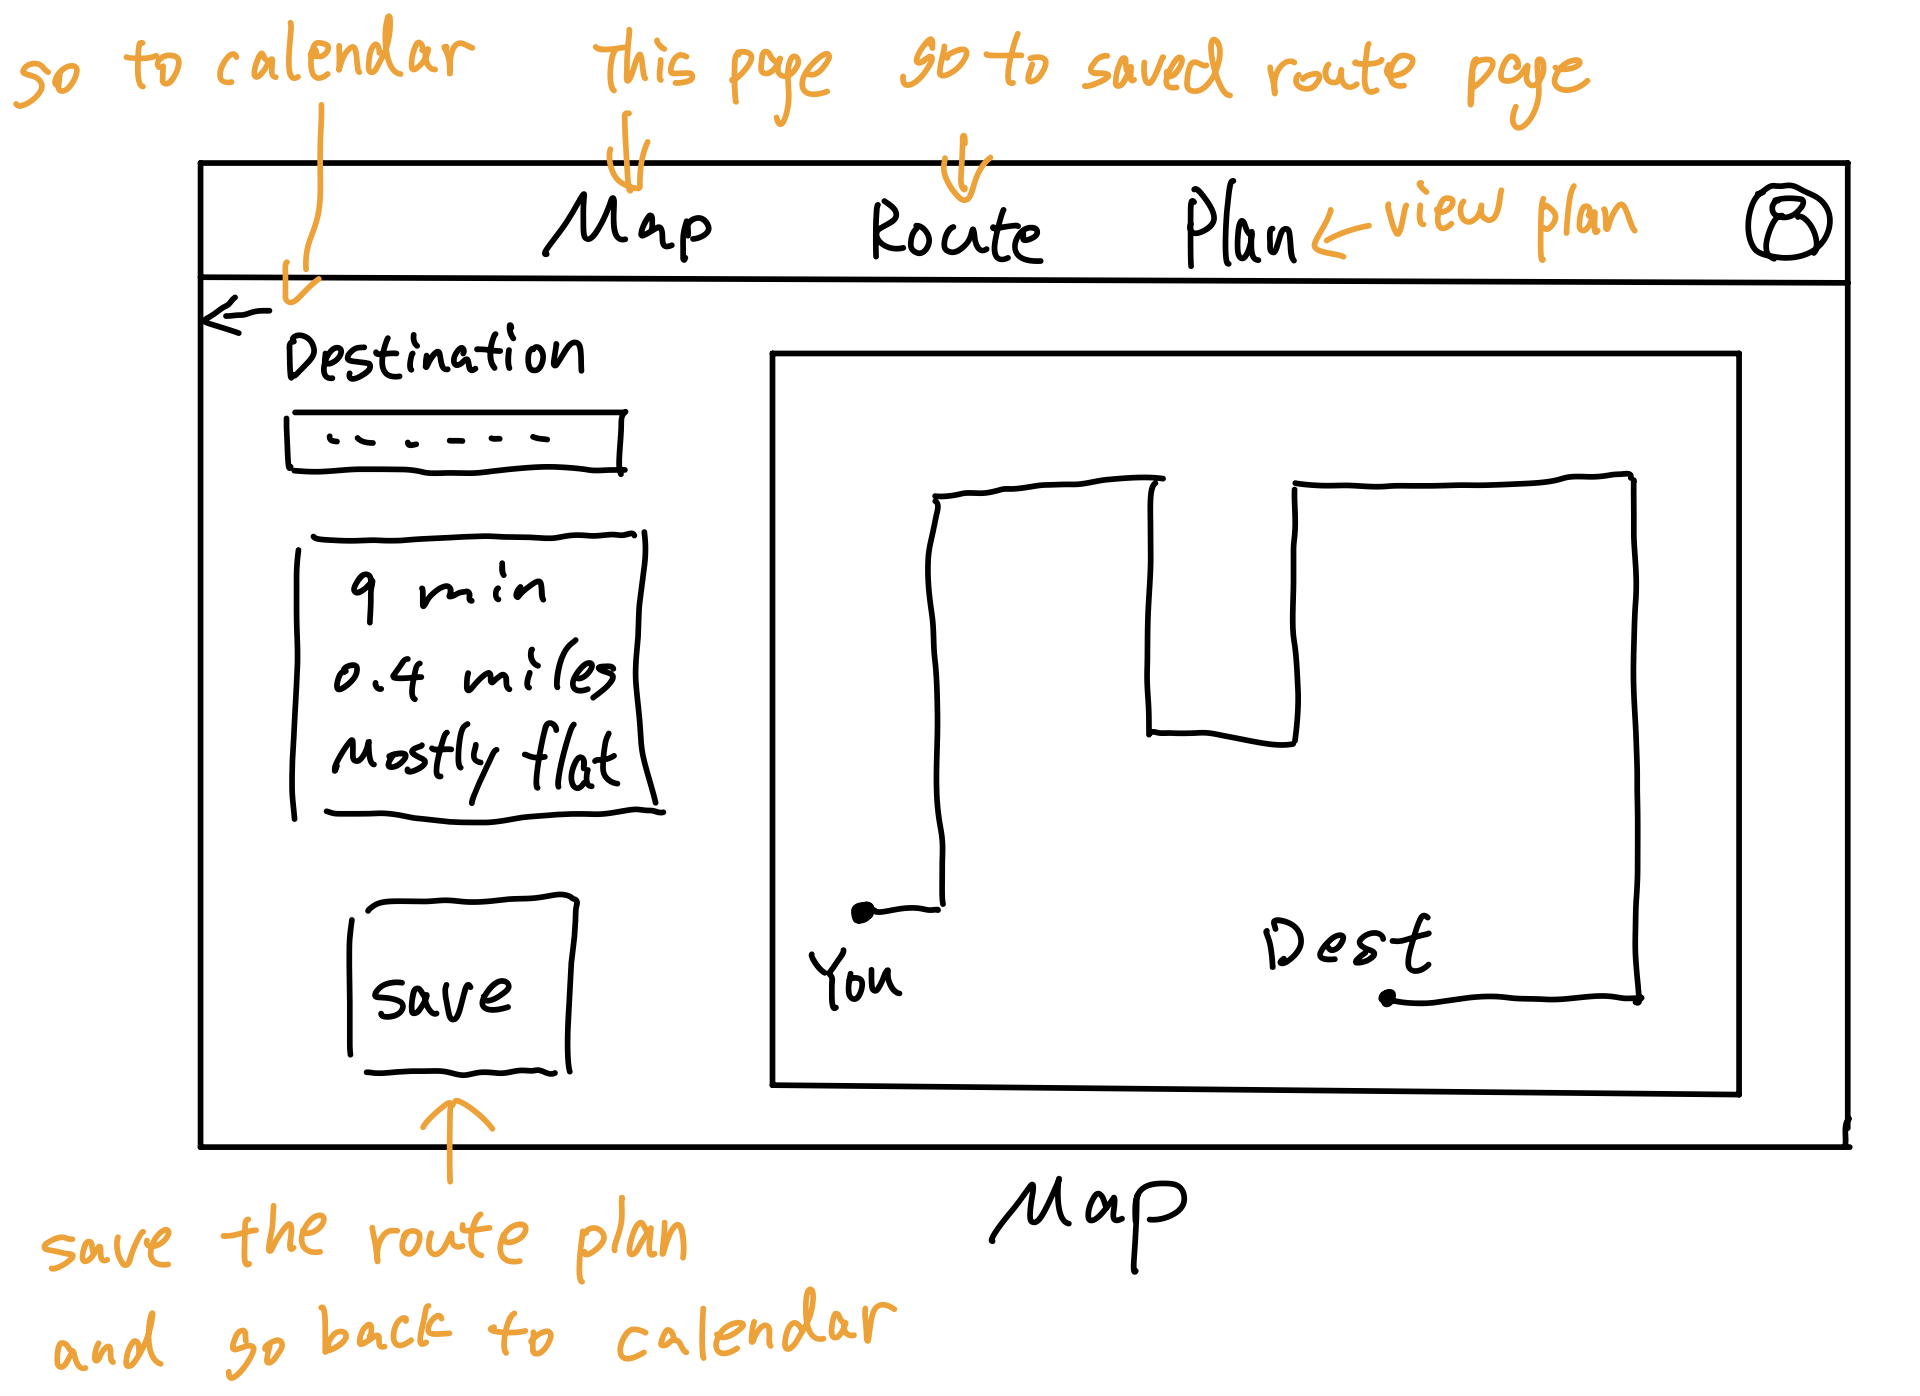 go to calendar this page go to saved route page
Map Route Plan view plan
Destination
9 min
0.4 miles
Mostly flat
You
Dest
save
Map
save the route plan
and go back to calendar